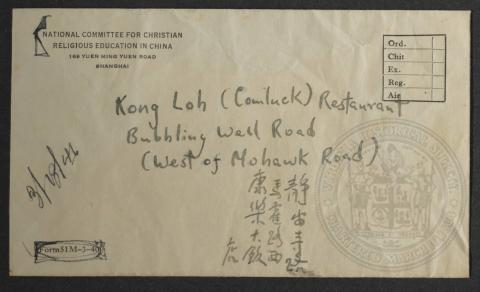 NATIONAL COMMITTEE FOR CHRISTIAN
RELIGIOUS EDUCATION IN CHINA
169 YUEN MING YUEN ROAD
SHANGHAI
Ord.
Chit
Ex.
Reg.
Air
Kong Loh (Comluck) Restaurant
Bubbling Well Road
(West of Mohawk Road)
靜安寺路
馬霍路西
康樂大飯店
Form SIM-3-46